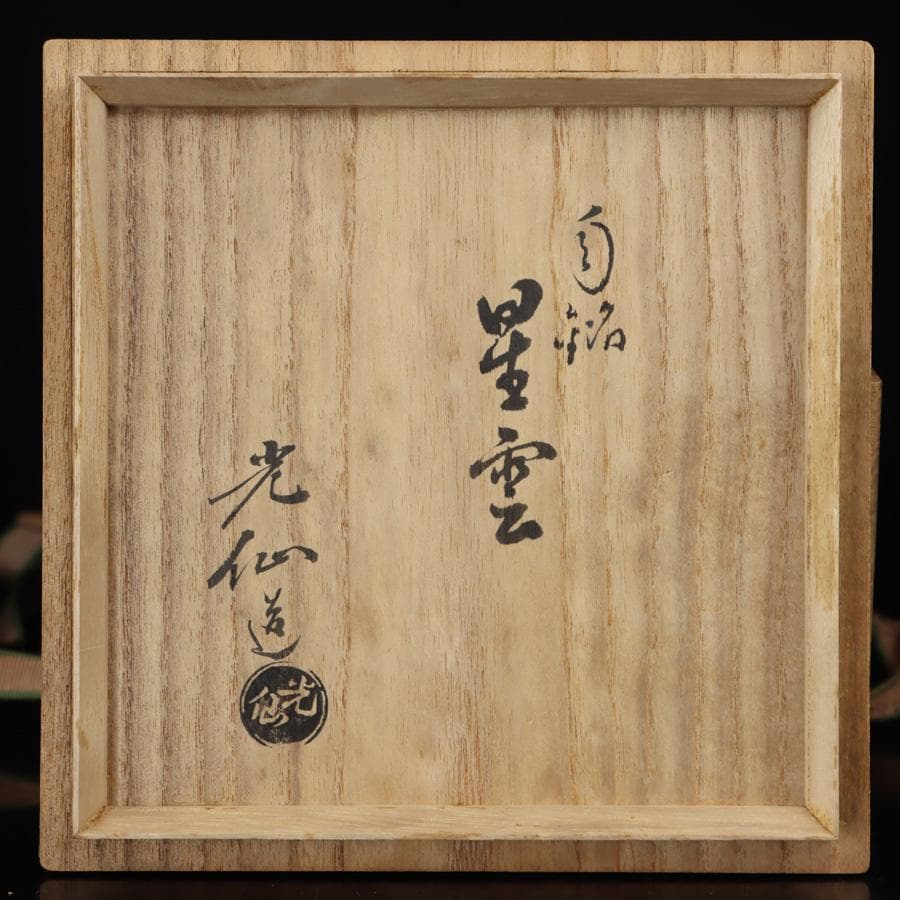 自銘
星雲
光仙造
光仙